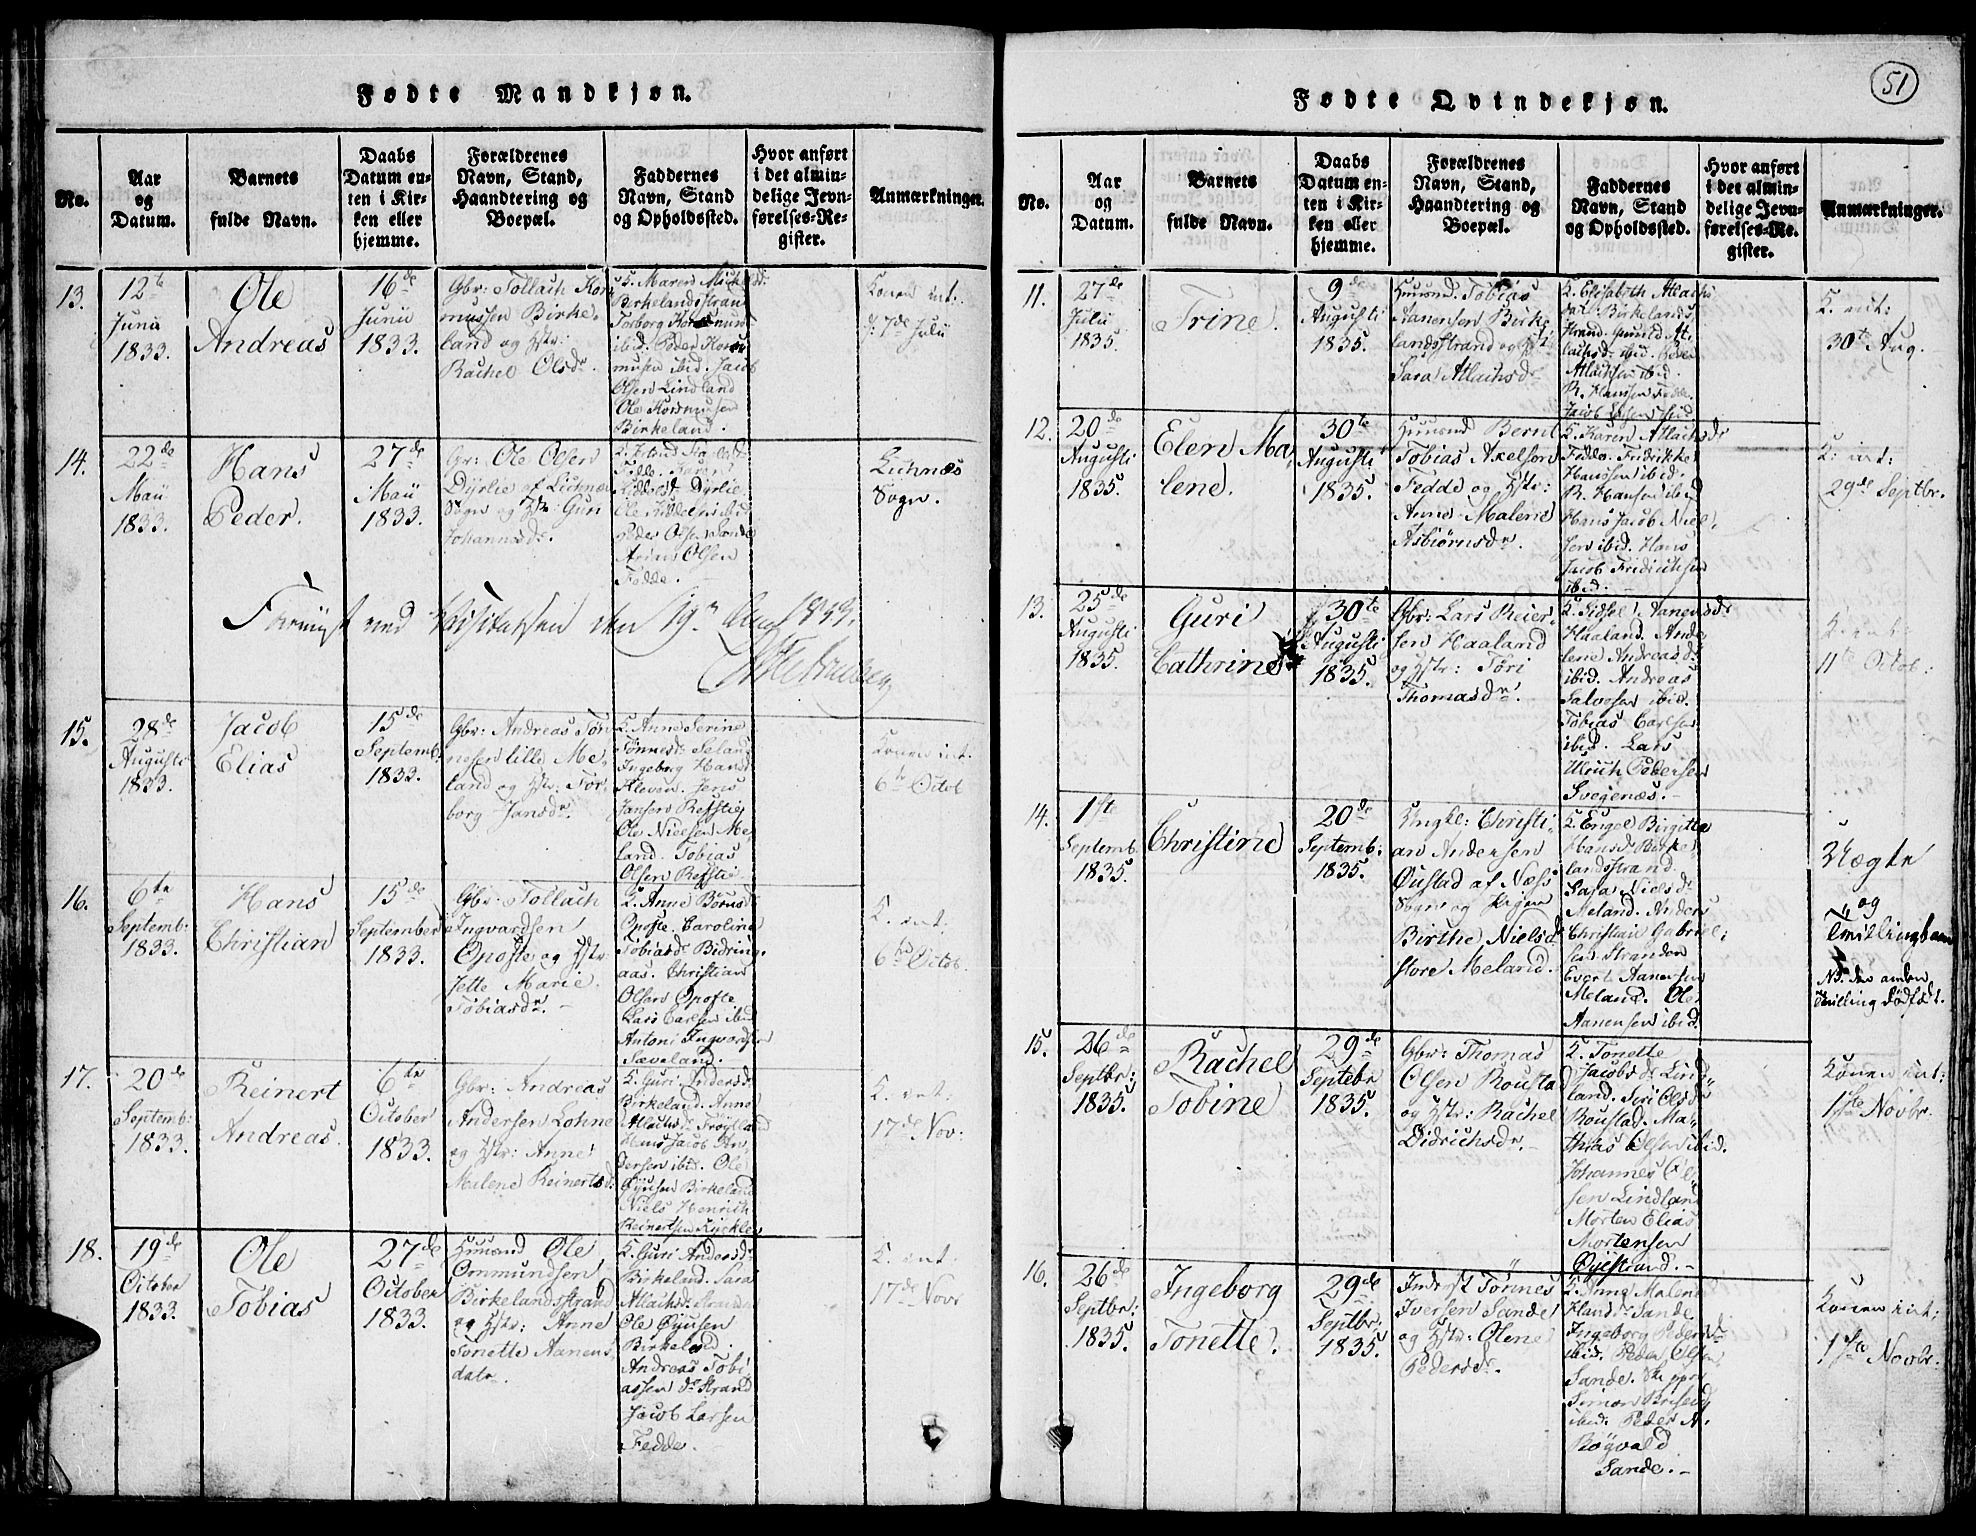 Fødte Mandkjøn.
No.
Aar
og
Datum.
Barnets
fulde Navn.
Daabs
Datum en-
ten i Kir-
ken eller
hjemme.
Forældrenes
Navn, Stand,
Haandtering og
Boepæl.
Faddernes
Navn, Stand
og Opholdssted.
Hvor anført
i det almin-
delige Jevn-
førelses-Re-
gister.
Anmærkninger.
13.
12te
Junii
1833.
Ole
Andreas
16de
Junii
1833.
Gbr: Tollach
mussen Birke-
land og Hstr:
Rachel Olsdr.
K. Maren
Birkelandsstrand
Torborg
ibid. Peder
musen ibid. Jacob
Olsen Lindland
Ole Kormusen
Birkeland.
Konen int:
7de Julii
14.
22de
Maii
1833.
Hans
Peder.
27de
Maii
1833.
Gr: Ole Olsen
Dyrlie af
Sogn og Hstr: Gun
Johannesdr.
Fedde. Karen
Dyrlie
Ole
Peder Olsen
Olsen
Fedde.
Sogn.
ved Visitatsen den 19de Aug 1833.
15.
28de
Augusti
1833.
Jacob
Elias
15de
Septemb:
1833.
Gbr: Andreas Tøn
nesen lille Me-
land og Hstr: Tor-
borg Jansdr.
K. Anne Serine
Tønnesdr Seland
Ingeborg Hansd
Kleven. Jens
Jansen Refstie
Ole Nielsen Me-
land. Tobias
Olsen Refstie
Konen int.
6te Octob
16.
6te
Septemb:
1833.
Hans
Christian
15de
September
1833.
Gbr: Tollach
Ingvardsen
Opofte og Hstr
Jette Marie
Tobiasdr.
K. Anne
Opofte. Carolina
Tobiasdr Bidring-
aas. Christian
Olsen Opofte
Lars Carlsen ibid
Antoni Ingvardsen
Sæveland.
K. int:
6te Octob.
17.
20de
Septemb:
1833.
Reinert
Andreas.
6te
October
1833.
Gbr: Andreas
Andersen Lohne
og Hstr: Anne
Malene Reinertsd.
K. Guri Andersdr
Birkeland. Anne
Atlachsdr Frøyland
Hans Jacob An-
dersen ibid. Ole
Øyusen Birkeland
Niels Henrich
Reinertsen
K. int:
17de Nov:
18.
19de
October
1833.
Ole
Tobias
27de
October
1833.
Huusmd Ole
Ommundsen
Birkelandsstrand
og Hstr: Anne
Tonette Aanens-
datr.
K. Guri Andersdr
Birkeland. Sara
Atlachsdr Strand
Ole Øyusen
Birkeland.
Andreas Tobi-
assen dr Strand
Jacob Larsen
Fedde.
K. int
17de Novr
51
Fødte Qvindekjøn.
No.
Aar
og
Datum.
Barnets
fulde Navn.
Daabs
Datum en-
ten i Kir-
ken eller
hjemme.
Forældrenes
Navn, Stand,
Haandtering og
Boepæl.
Faddernes
Navn, Stand
og Opholdssted.
Hvor anført
i det almin-
delige Jevn-
førelses-Re-
gister.
Anmærkninger.
11.
27de
Julii
1835.
Trine.
9de
Augusti
1835.
Huusmd. Tobias
Aanensen Birke
landsstrand og Hst:
Sara Atlachsdr
K. Elisabeth Atlachs
datr. Birkelands
Strand. Gunild At-
lachsdr ibid. Peder
Atlachsen ibid.
R. Hansen Fedde.
Jacob Larsen ibid
K. int:
30te Aug.
12.
20de
Augusti
1835.
Elen Ma
lene.
30te
Augusti
1835.
Huusmd Bernt
Tobias Axelsen
Fedde og Hstr:
Anne Malene
Asbiørnsdr.
K. Karen Atlachsdr
Fedde. Fridrikke
Hansen ibid.
R. Hansen ibid
Hans Jacob Niel-
sen ibid. Hans
Jacob Fridrichsen
ibid.
K. int:
29de Septbr.
13.
25de
Augusti
1835.
Guri
Cathrine
30te
Augusti
1835.
Gbr: Lars Reier-
sen Haaland
og Hstr: Tori
Thomasdr.
K. Sidsel Aanensdr
Haaland. Ande-
lene Andreasdr
ibid. Andreas
Salvesen ibid.
Tobias Carlsen
ibid. Lars
Ulrich Pedersen
Svegenæs.
K. int:
11te Octob:
14.
1ste
Septemb.
1835.
Christine
20de
Septemb:
1835.
Ungkl: Christi-
an Andersen
Øustad af Næss
Sogn og Pigen
Birthe Nielsdr
store Meland.
K. Engel Birgitte
Hansdr Birke-
landsstrand.
Sara Nielsdr
Meland. Anders
Christian Gabriel-
sen Stranden
Evert Aanensen
Meland. Ole
Aanensen ibid.
Uægte
og
Tvillingbarn
NB. den anden
Tvilling dødfødt.
15.
26de
Septbr:
1835.
Rachel
Tobine
29de
Septebr
1835.
Gbr: Thomas
Olsen Roustad
og Hstr: Rachel
Didrichsdr.
K. Tonette
Jacobsdr Lind-
land. Siri Olsdr
Roustad. Ma-
thias Olsen ibid.
Johannes Ol-
sen Lindland
Morten Elias
Mortensen
Øyestrand.
Konen int:
1ste Novbr.
16.
26de
Septbr:
1835.
Ingeborg
Tonette.
29de
Septbr:
1835.
Inderst Tønnes
Iversen Sande
og Hstr: Olene
Pedersdr.
K. Anne Malene
Hansdr Sande
Ingeborg Pedersdr
ibid. Peder Olsen
Sande. Skipper
Simon
ibid. Peder A.
Røgvald
Sande.
Konen int:
1ste Novbr.